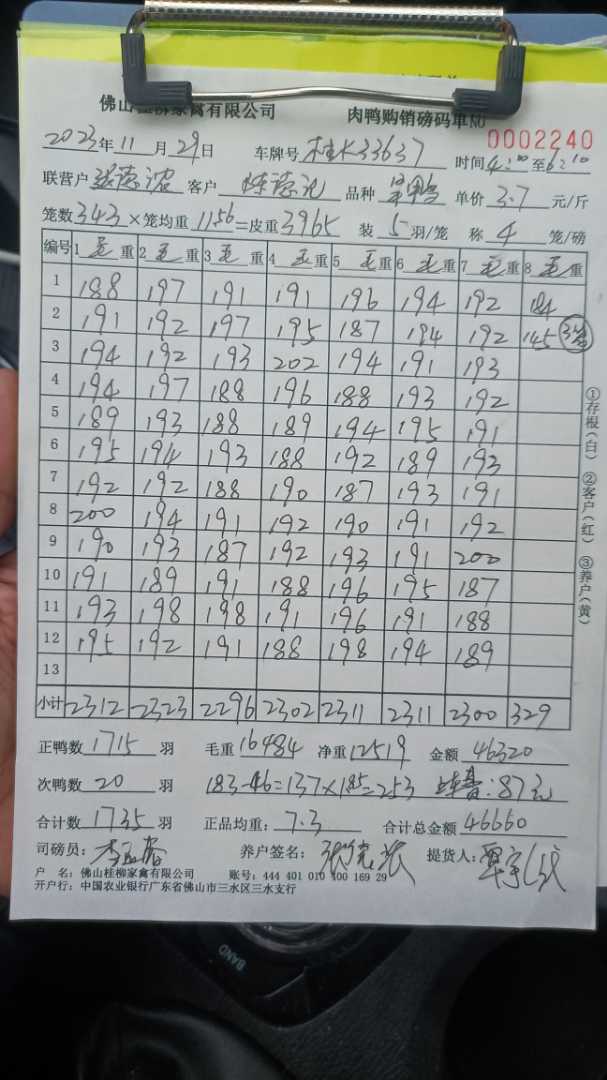 佛山桂柳家禽有限公司 肉鸭购销磅码单NO 0002240
2023年11月29日 车牌号 桂K33637 时间4:00至6:10
联营户 客户 品种 单价 3.7 元/斤
笼数343×笼均重11.56=皮重3965 装5羽/笼 称4笼/磅
编号 1毛重 2毛重 3毛重 4毛重 5毛重 6毛重 7毛重 8毛重
1 188 197 191 191 196 194 192 184
2 191 192 197 195 187 194 192 145
3 194 192 193 202 194 191 193
4 194 197 188 196 188 193 192
5 189 193 188 189 194 195 191
6 195 194 193 188 192 189 193
7 192 192 188 190 187 193 191
8 200 194 191 192 190 191 192
9 190 193 187 192 193 191 200
10 191 189 191 188 196 195 187
11 193 198 198 191 196 191 188
12 195 192 191 188 198 194 189
13
小计 2312 2323 2296 2302 2311 2311 2300 329
正鸭数 1715 羽 毛重 16484 净重 12519 金额 46320
次鸭数 20 羽 183-46=137×1.85=253 :87元
合计数 1735 羽 正品均重: 7.3 合计总金额 46660
司磅员: 养户签名: 提货人:
户 名: 佛山桂柳家禽有限公司 账号: 444 401 010 400 169 29
开户行: 中国农业银行广东省佛山市三水区三水支行
①存根(白) ②客户(红) ③养户(黄)
BAND